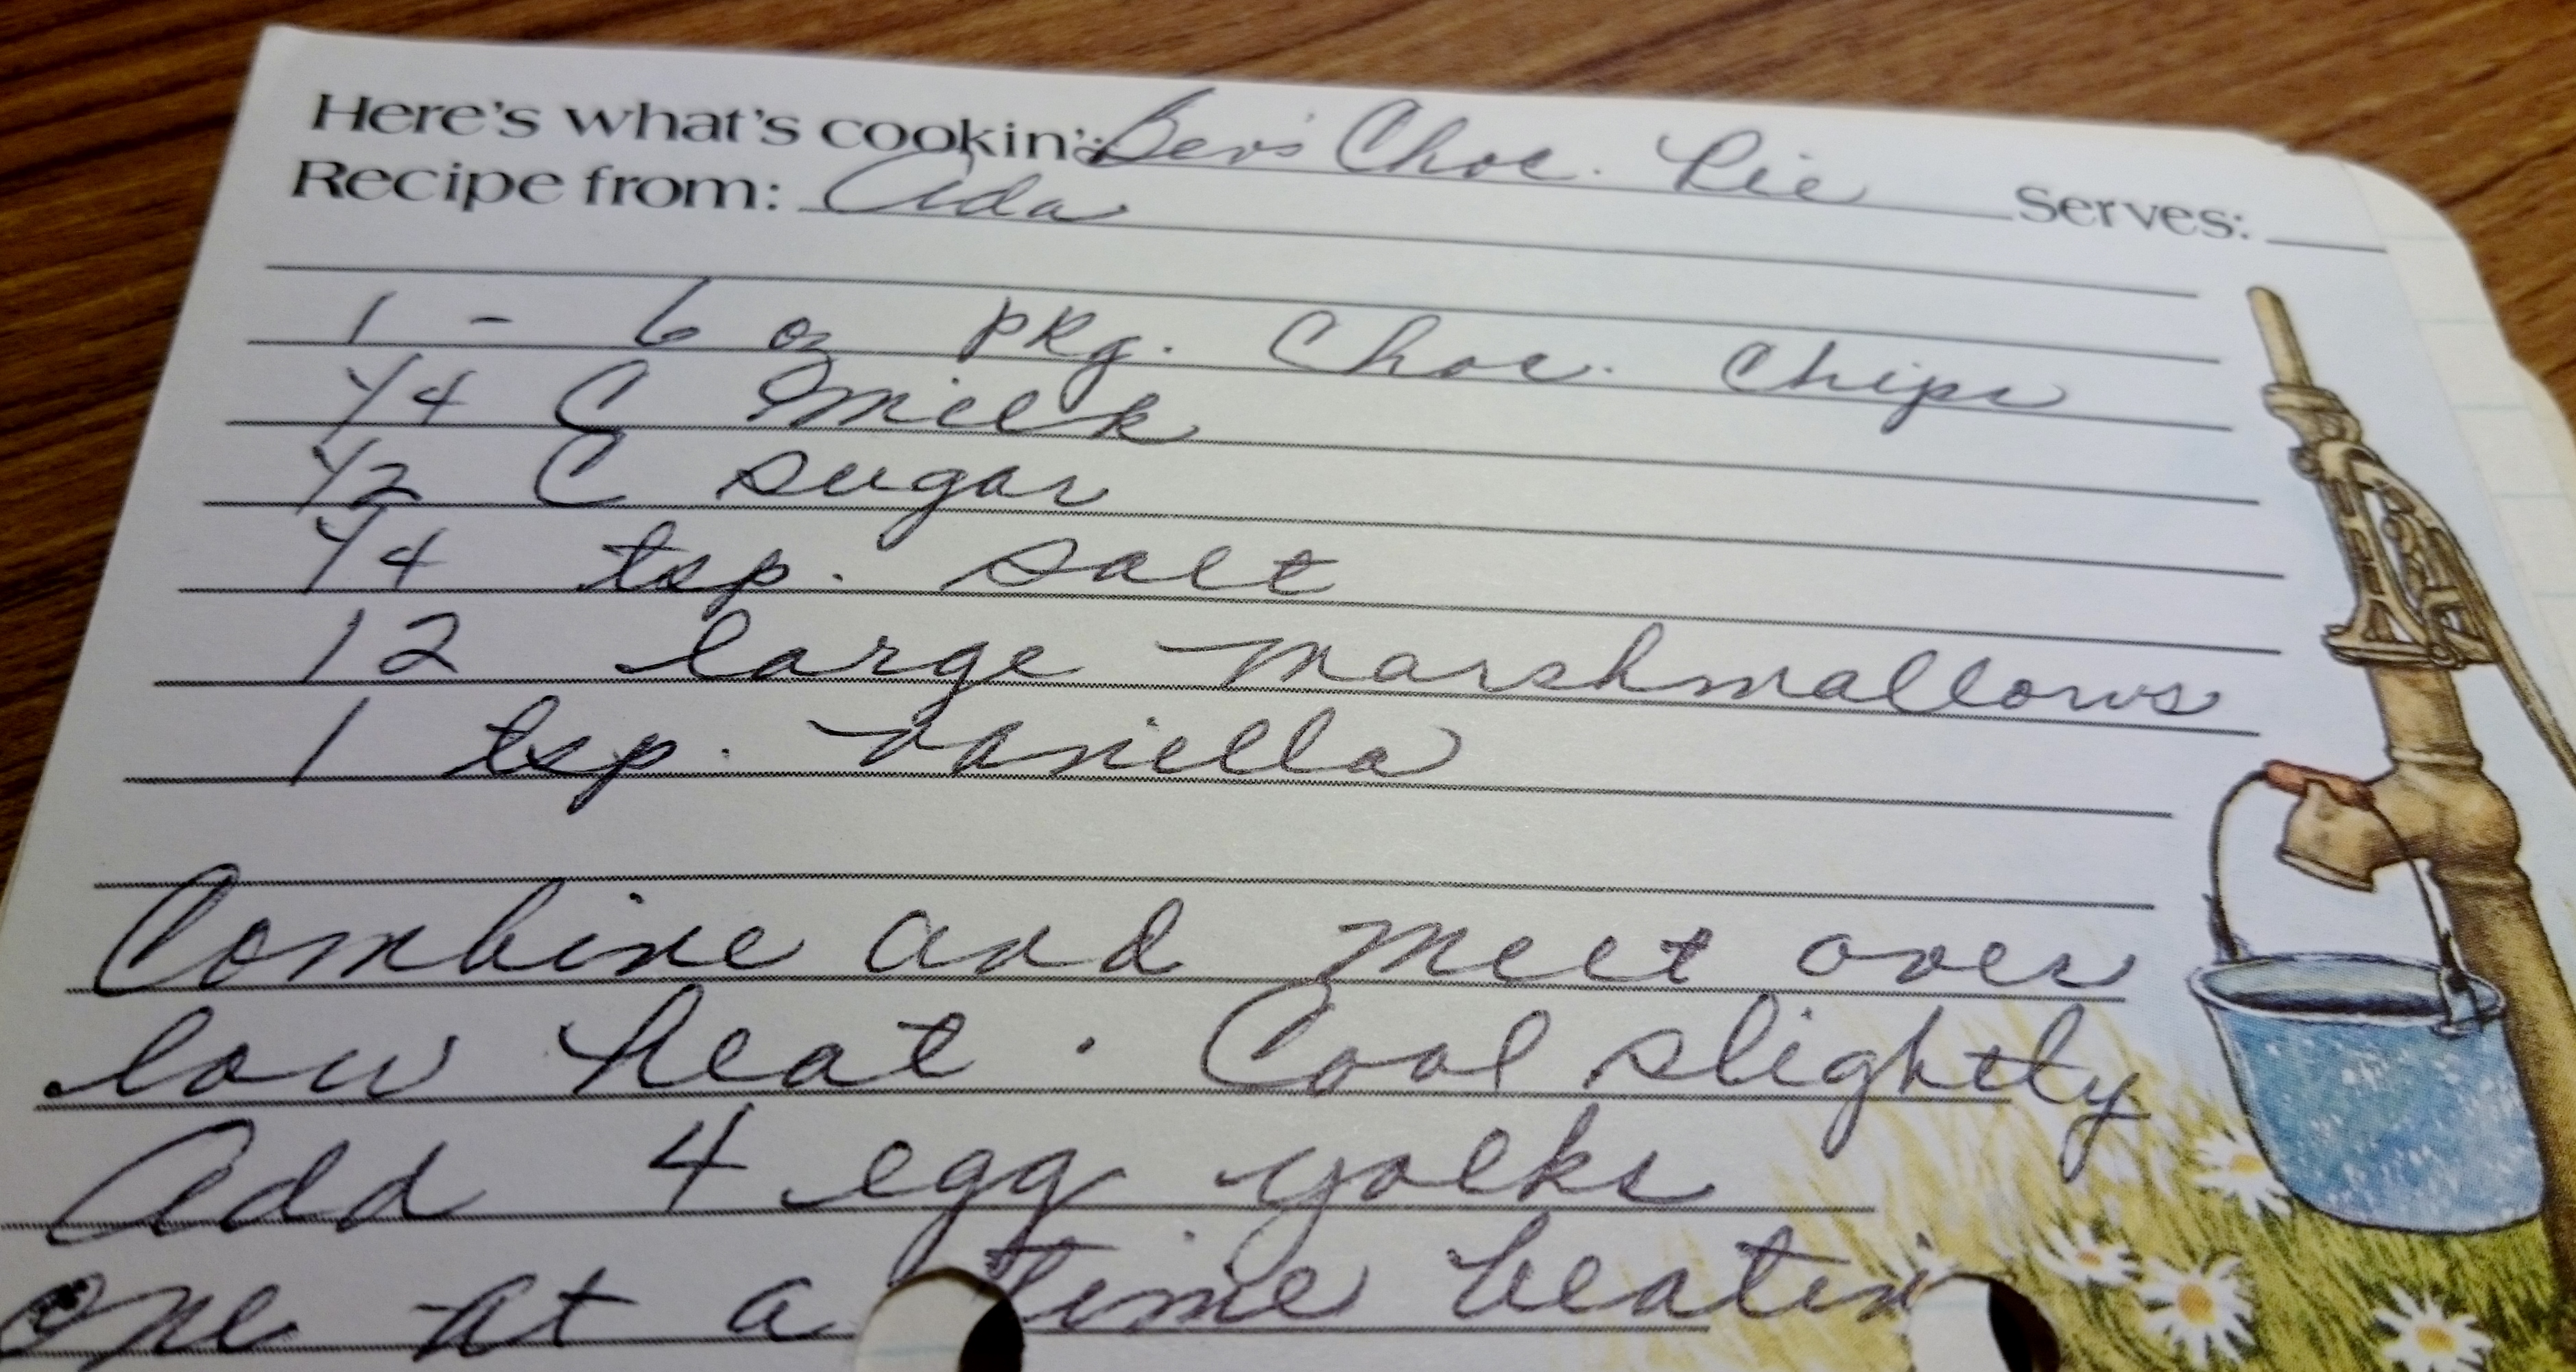 Here's what's cookin': Bev's Choc. Pie Serves:
Recipe from: Ada
1 - 6 oz pkg. Choc. Chips
1/4 C milk
1/2 C sugar
1/4 tsp. salt
12 large marshmallows
1 tsp. vanilla
Combine and melt over
low heat. Cool slightly
Add 4 egg yolks
one at a time beatin